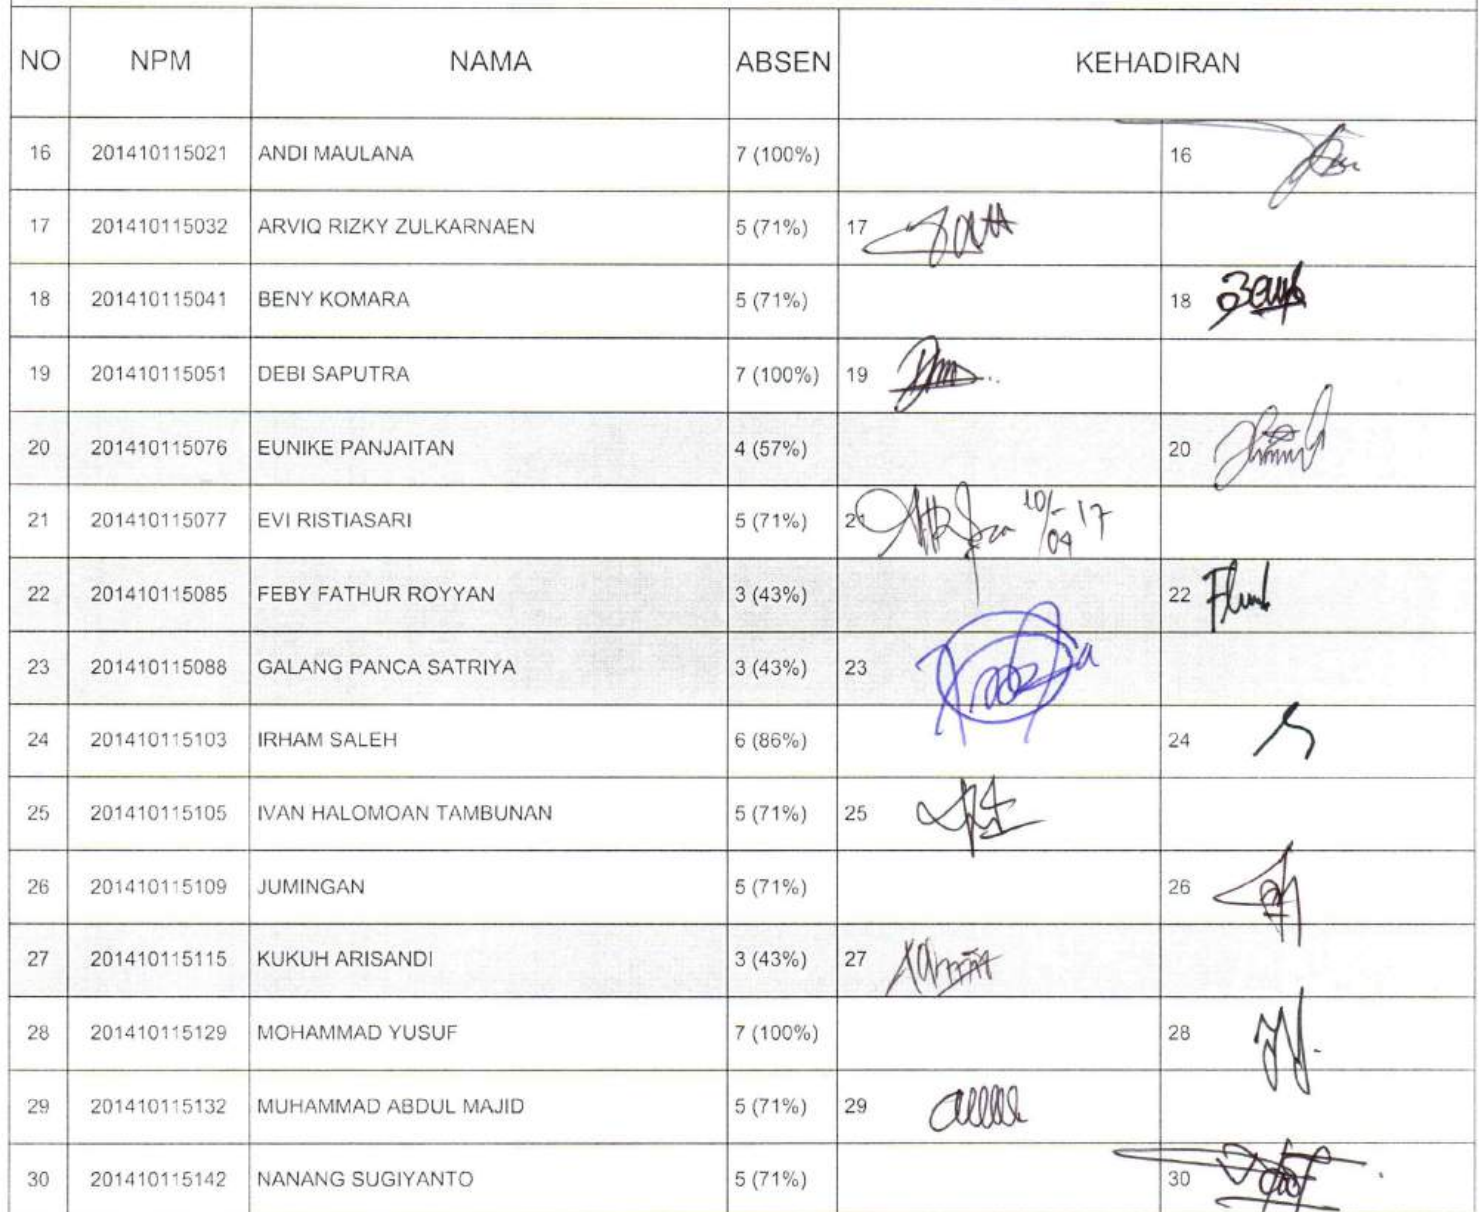 NO NPM NAMA ABSEN KEHADIRAN
16 201410115021 ANDI MAULANA 7 (100%) 16
17 201410115032 ARVIQ RIZKY ZULKARNAEN 5 (71%) 17
18 201410115041 BENY KOMARA 5 (71%) 18
19 201410115051 DEBI SAPUTRA 7 (100%) 19
20 201410115076 EUNIKE PANJAITAN 4 (57%) 20
21 201410115077 EVI RISTIASARI 5 (71%) 21 10/04-17
22 201410115085 FEBY FATHUR ROYYAN 3 (43%) 22
23 201410115088 GALANG PANCA SATRIYA 3 (43%) 23
24 201410115103 IRHAM SALEH 6 (86%) 24
25 201410115105 IVAN HALOMOAN TAMBUNAN 5 (71%) 25
26 201410115109 JUMINGAN 5 (71%) 26
27 201410115115 KUKUH ARISANDI 3 (43%) 27
28 201410115129 MOHAMMAD YUSUF 7 (100%) 28
29 201410115132 MUHAMMAD ABDUL MAJID 5 (71%) 29
30 201410115142 NANANG SUGIYANTO 5 (71%) 30